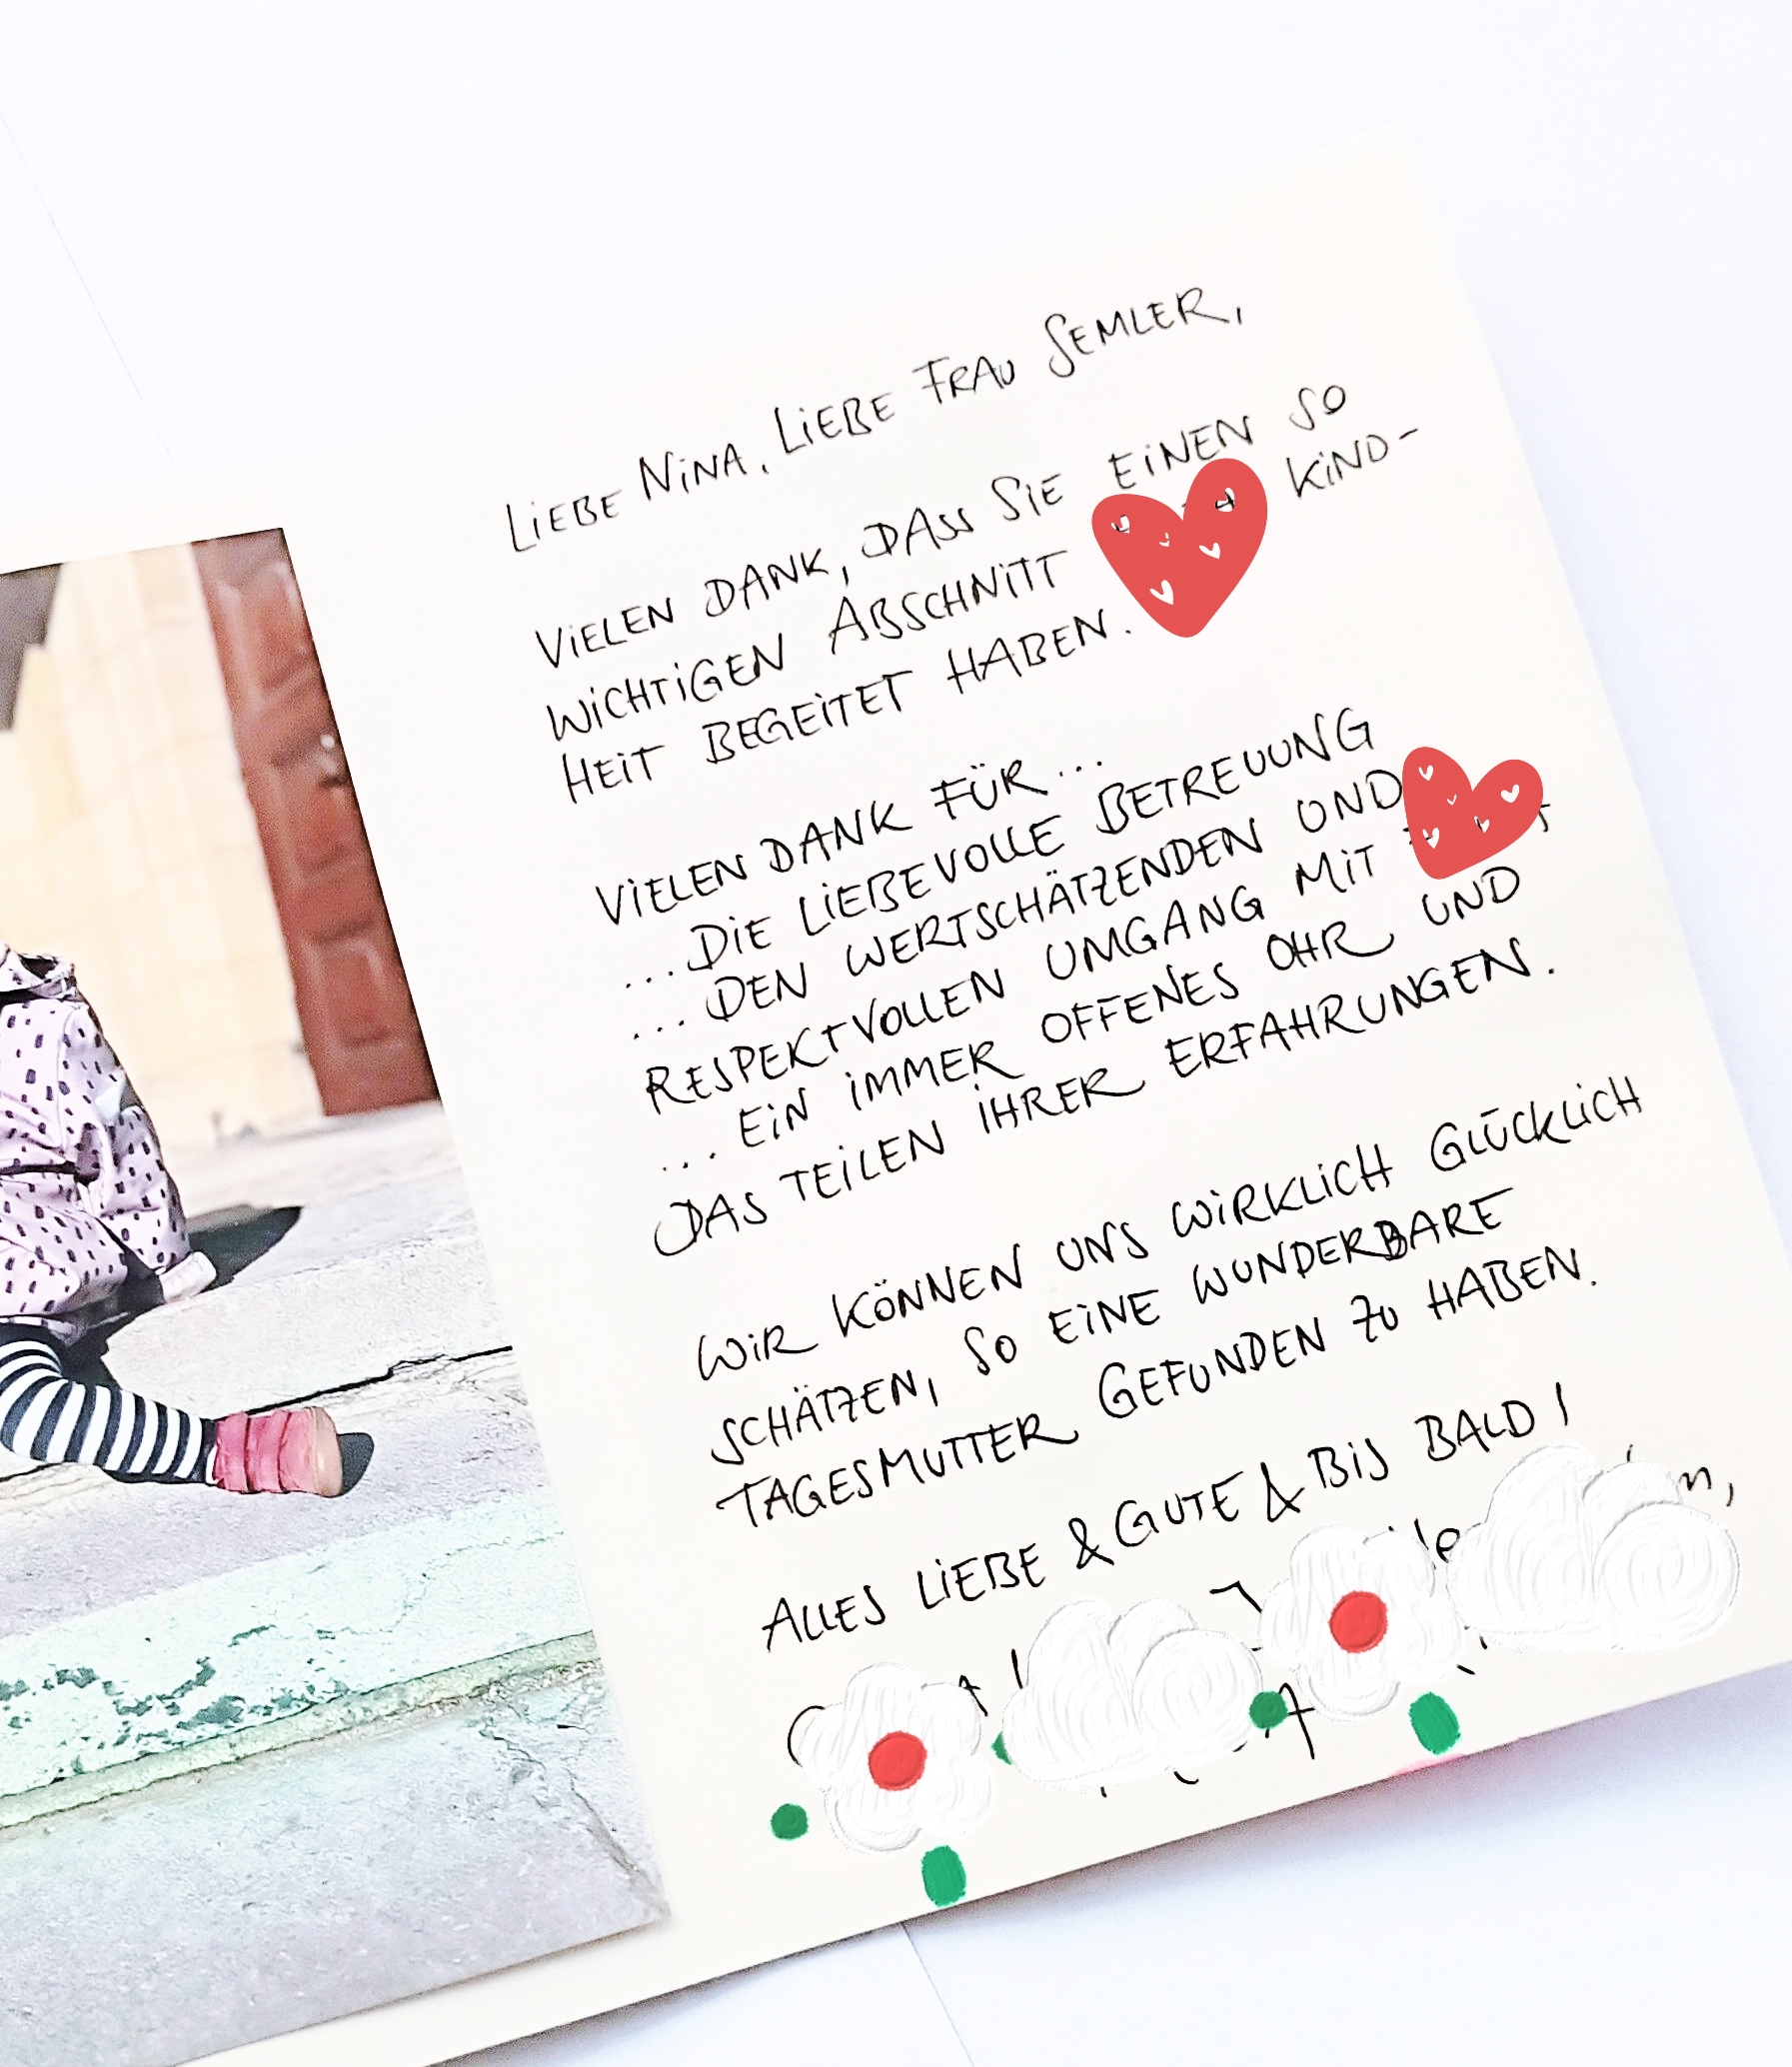 LIEBE NINA, LIEBE FRAU SEMLER,
VIELEN DANK, DASS SIE EINEN SO
WICHTIGEN ABSCHNITT KIND-
HEIT BEGEITET HABEN.
VIELEN DANK FÜR...
...DIE LIEBEVOLLE BETREUUNG
...DEN WERTSCHÄTZENDEN UND
RESPEKTVOLLEN UMGANG MIT
...EIN IMMER OFFENES OHR UND
DAS TEILEN IHRER ERFAHRUNGEN.
WIR KÖNNEN UNS WIRKLICH GLÜCKLICH
SCHÄTZEN, SO EINE WUNDERBARE
TAGESMUTTER GEFUNDEN ZU HABEN.
ALLES LIEBE & GUTE & BIS BALD!